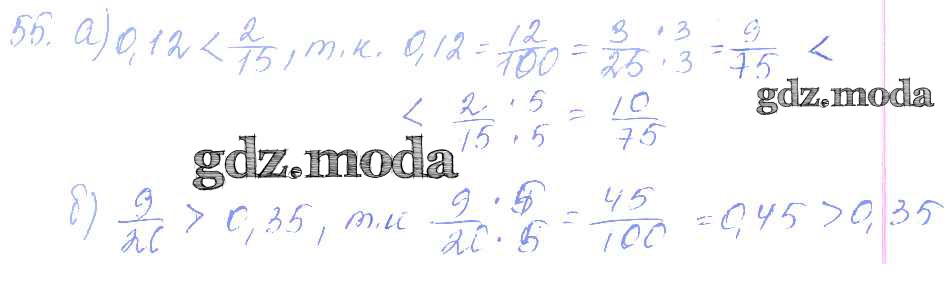 55. а) 0,12 < 2/15, т.к. 0,12 = 12/100 = 3/25 · 3/3 = 9/75 <
gdz.moda
< 2/15 · 5/5 = 10/75
gdz.moda
б) 9/20 > 0,35, т.к 9/20 · 5/5 = 45/100 = 0,45 > 0,35